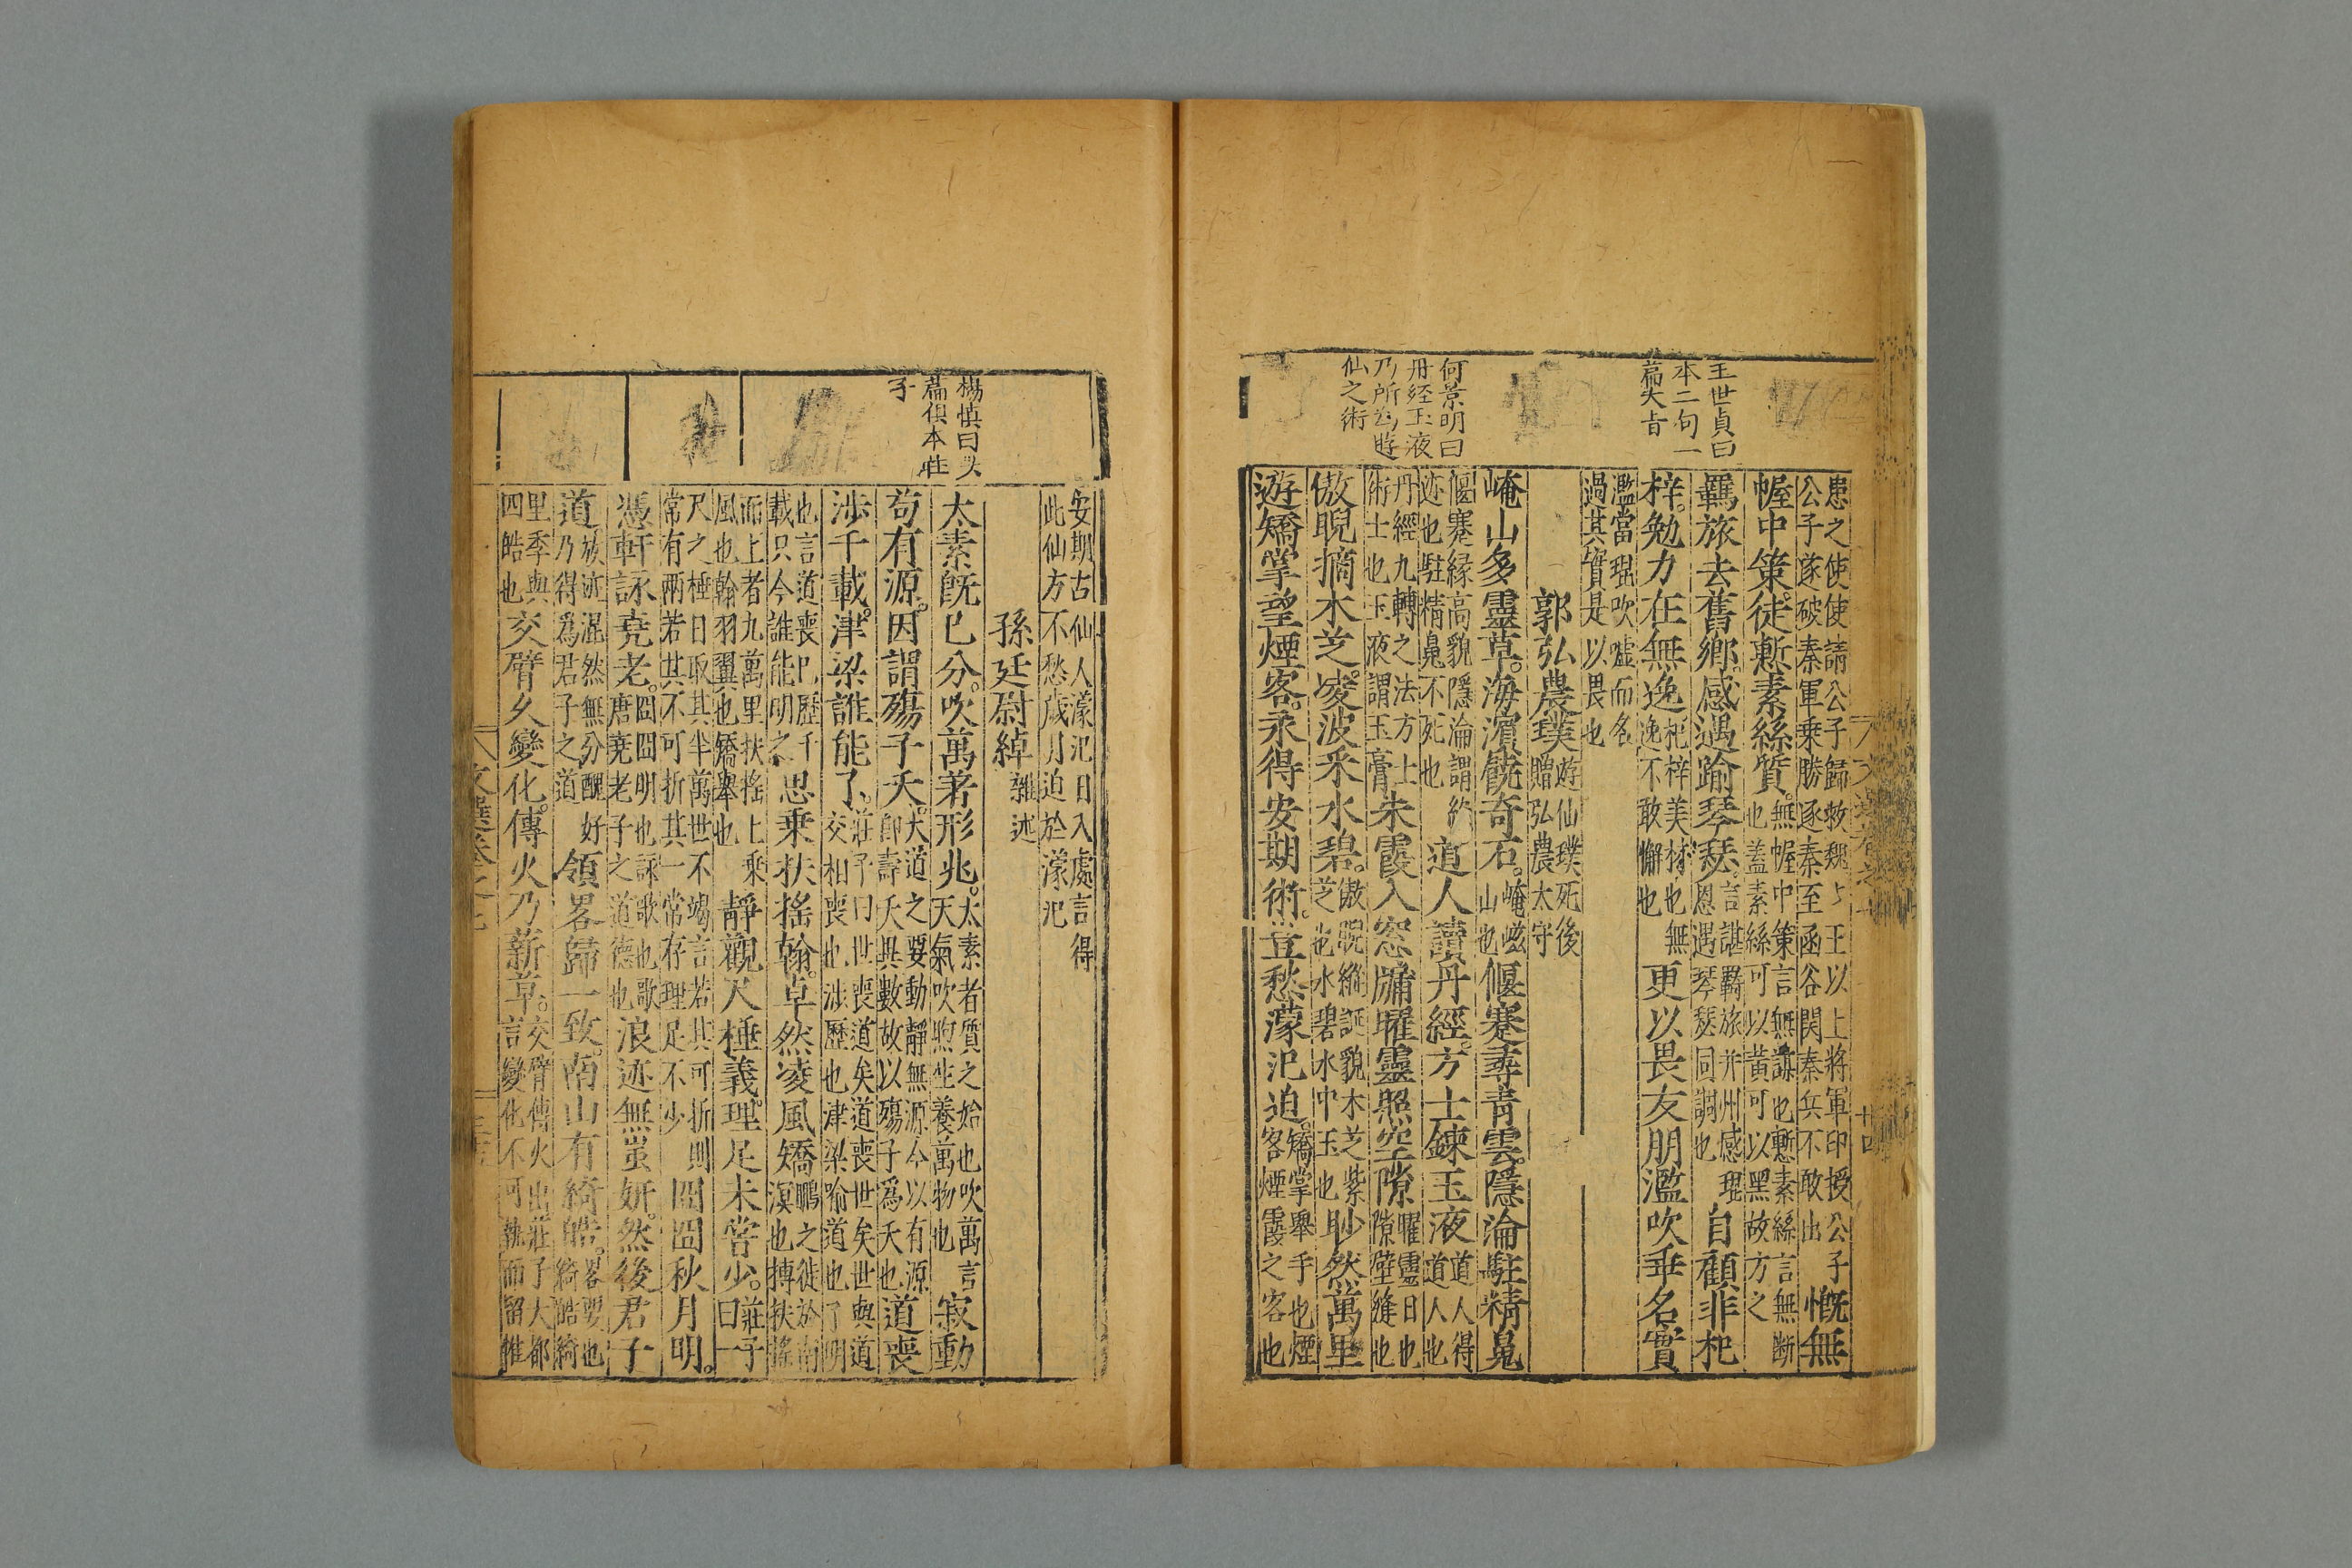 王世貞曰
本二句一
篇大旨
何景明曰
丹経玉液
乃所為遊
仙之術
患之使使請公子歸救魏魏王以上將軍印授公子
公子遂破秦軍乘勝逐秦至函谷関秦兵不敢出
慨無
幄中策。徒慙素絲質。
無幄中策言無謀也慙素絲言無断
也蓋素絲可以黃可以黑故方之
羈旅去舊鄉。感遇踰琴瑟。
言諶羇旅并州感琨
恩遇琴瑟同調也
自顧非杞
梓。勉力在無逸
杞梓美材也無
逸不敢懈也
更以畏友朋濫吹乖名實
濫當琨吹嘘而名
過其實是以畏也
郭弘農璞
遊仙璞死後
贈弘農太守
崦山多靈草。海濱饒奇石。
崦嵫
山也
偃蹇尋青雲。隱淪駐精䰟
偃蹇緣高貌隱淪謂絶
迹也駐精䰟不死也
道人讀丹經。方士鍊玉液
道人得
道人也
丹經九轉之法方上
術士也玉液謂玉膏
朱霞入窓牖曜靈照空隙
曜靈日也
隙壁縫也
傲睨摘木芝。凌波采水碧。
傲睨縱誕貌木芝紫
芝也水碧水中玉也
眇然萬里
遊矯掌望煙客。永得安期術。豈愁濛汜迫。
矯掌舉手也煙
客煙霞之客也
楊慎曰大
篇俱本莊
子
安期古仙人濛汜日入處言得
此仙方不愁歲月迫於濛汜
孫廷尉綽雜述
太素旣已分。吹萬著形兆。
太素者質之始也吹萬言
天氣吹煦生養萬物也
寂動
苟有源。因謂殤子夭。
大道之要動靜無源今以有源
卽壽夭異數故以殤子爲夭也
道喪
涉千載。津梁誰能了。
莊子曰世喪道矣道喪世矣世與道
交相喪也涉歷也津梁喻道也了明
也言道喪巳歷千
載只今誰能明之
思乘扶搖翰。卓然凌風矯
鵬之徙於南
溟也摶扶搖
而上者九萬里扶搖上
風也翰羽翼也矯舉也
乘
靜觀尺棰義。理足未嘗少。
莊子
曰一
尺之棰日取其半萬世不竭言若其可折則
常有兩若其不可折其一常存理足不少
冏冏秋月明。
憑軒詠堯老。
冏冏明也詠歌也歌
唐堯老子之道德也
浪迹無蚩妍。然後君子
道
放迹混然無分醜好
乃得爲君子之道
領畧歸一致。南山有綺皓。
畧要也
綺皓綺
里季與
四皓也
交臂久變化。傳火乃薪草。
交臂傳火出莊子大都
言變化不可執而留惟